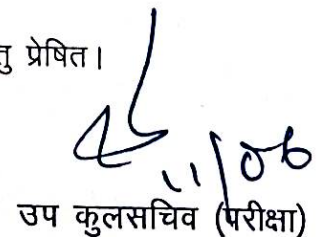 तु प्रेषित।
11/06
उप कुलसचिव (परीक्षा)